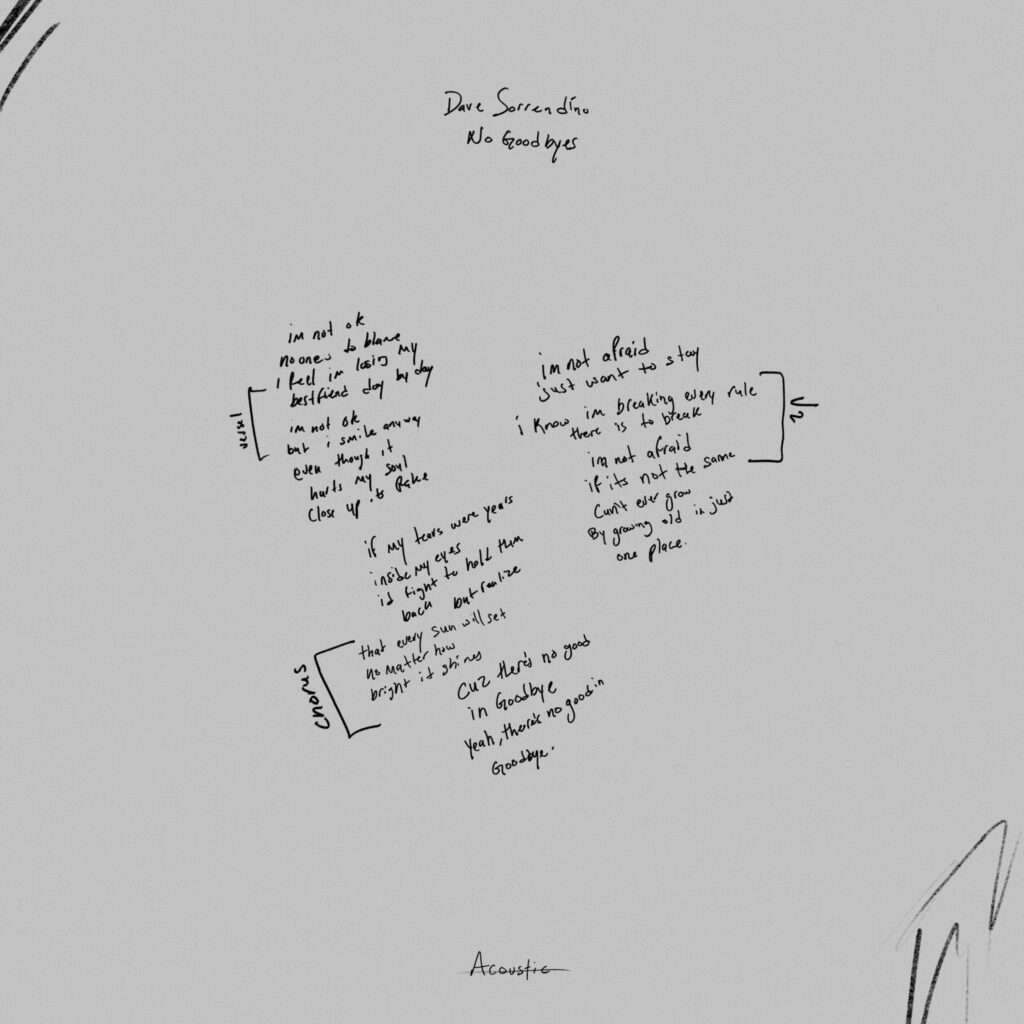 Dave Sorrendino
No Goodbyes
im not ok
no ones to blame
i feel im losing my
bestfriend day by day
verse 1
im not ok
but i smile anyway
even though it
hurts my soul
close up its fake
im not afraid
just want to stay
i know im breaking every rule
there is to break
V2
im not afraid
if its not the same
Can't ever grow
By growing old in just
one place.
if my tears were years
inside my eyes
id fight to hold them
back but realize
Chorus
that every sun will set
no matter how
bright it shines
cuz there's no good
in Goodbye
Yeah, there's no good in
Goodbye.
Acoustic